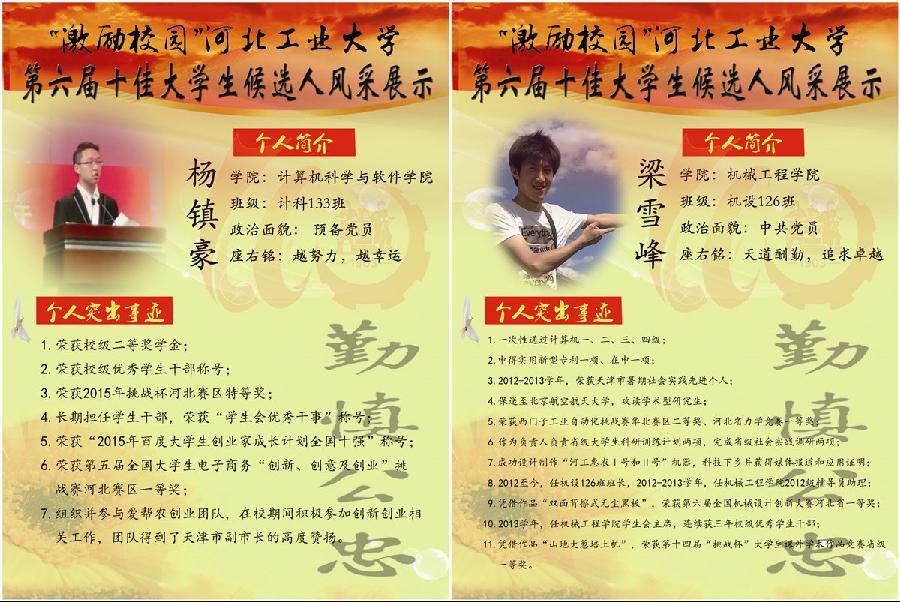 “激励校园”河北工业大学
第六届十佳大学生候选人风采展示
个人简介
杨镇豪
学院：计算机科学与软件学院
班级：计科133班
政治面貌： 预备党员
座右铭：越努力，越幸运
个人突出事迹
1. 荣获校级二等奖学金；
2. 荣获校级优秀学生干部称号；
3. 荣获2015年挑战杯河北赛区特等奖；
4. 长期担任学生干部，荣获“学生会优秀干事”称号；
5. 荣获“2015年百度大学生创业家成长计划全国十强”称号；
6. 荣获第五届全国大学生电子商务“创新、创意及创业”挑
战赛河北赛区一等奖；
7. 组织并参与爱帮农创业团队，在校期间积极参加创新创业相
关工作，团队得到了天津市副市长的高度赞扬。
勤慎公忠
“激励校园”河北工业大学
第六届十佳大学生候选人风采展示
个人简介
梁雪峰
学院：机械工程学院
班级：机设126班
政治面貌： 中共党员
座右铭：天道酬勤，追求卓越
个人突出事迹
1. 一次性通过计算机一、二、三、四级；
2. 申得实用新型专利一项、在申一项；
3. 2012-2013学年，荣获天津市暑期社会实践先进个人；
4. 保送至北京航空航天大学，攻读学术型研究生；
5. 荣获西门子工业自动化挑战赛华北赛区二等奖、河北省力学竞赛一等奖；
6. 作为负责人负责省级大学生科研训练计划两项，完成省级社会实践调研两项；
7. 成功设计制作“河工惠农Ⅰ号和Ⅱ号”机器，科技下乡并获得媒体报道和应用证明；
8. 2012至今，任机设126班班长，2012-2013学年，任机械工程学院2012级精导员助理；
9. 凭借作品“双面背擦式无尘黑板”，荣获第六届全国机械设计创新大赛河北省一等奖；
10. 2013学年，任机械工程学院学生会主席，连续获三年校级优秀学生干部；
11. 凭借作品“山地大葱培土机”，荣获第十四届“挑战杯”大学生课外学术作品竞赛省级
一等奖。
勤慎公忠